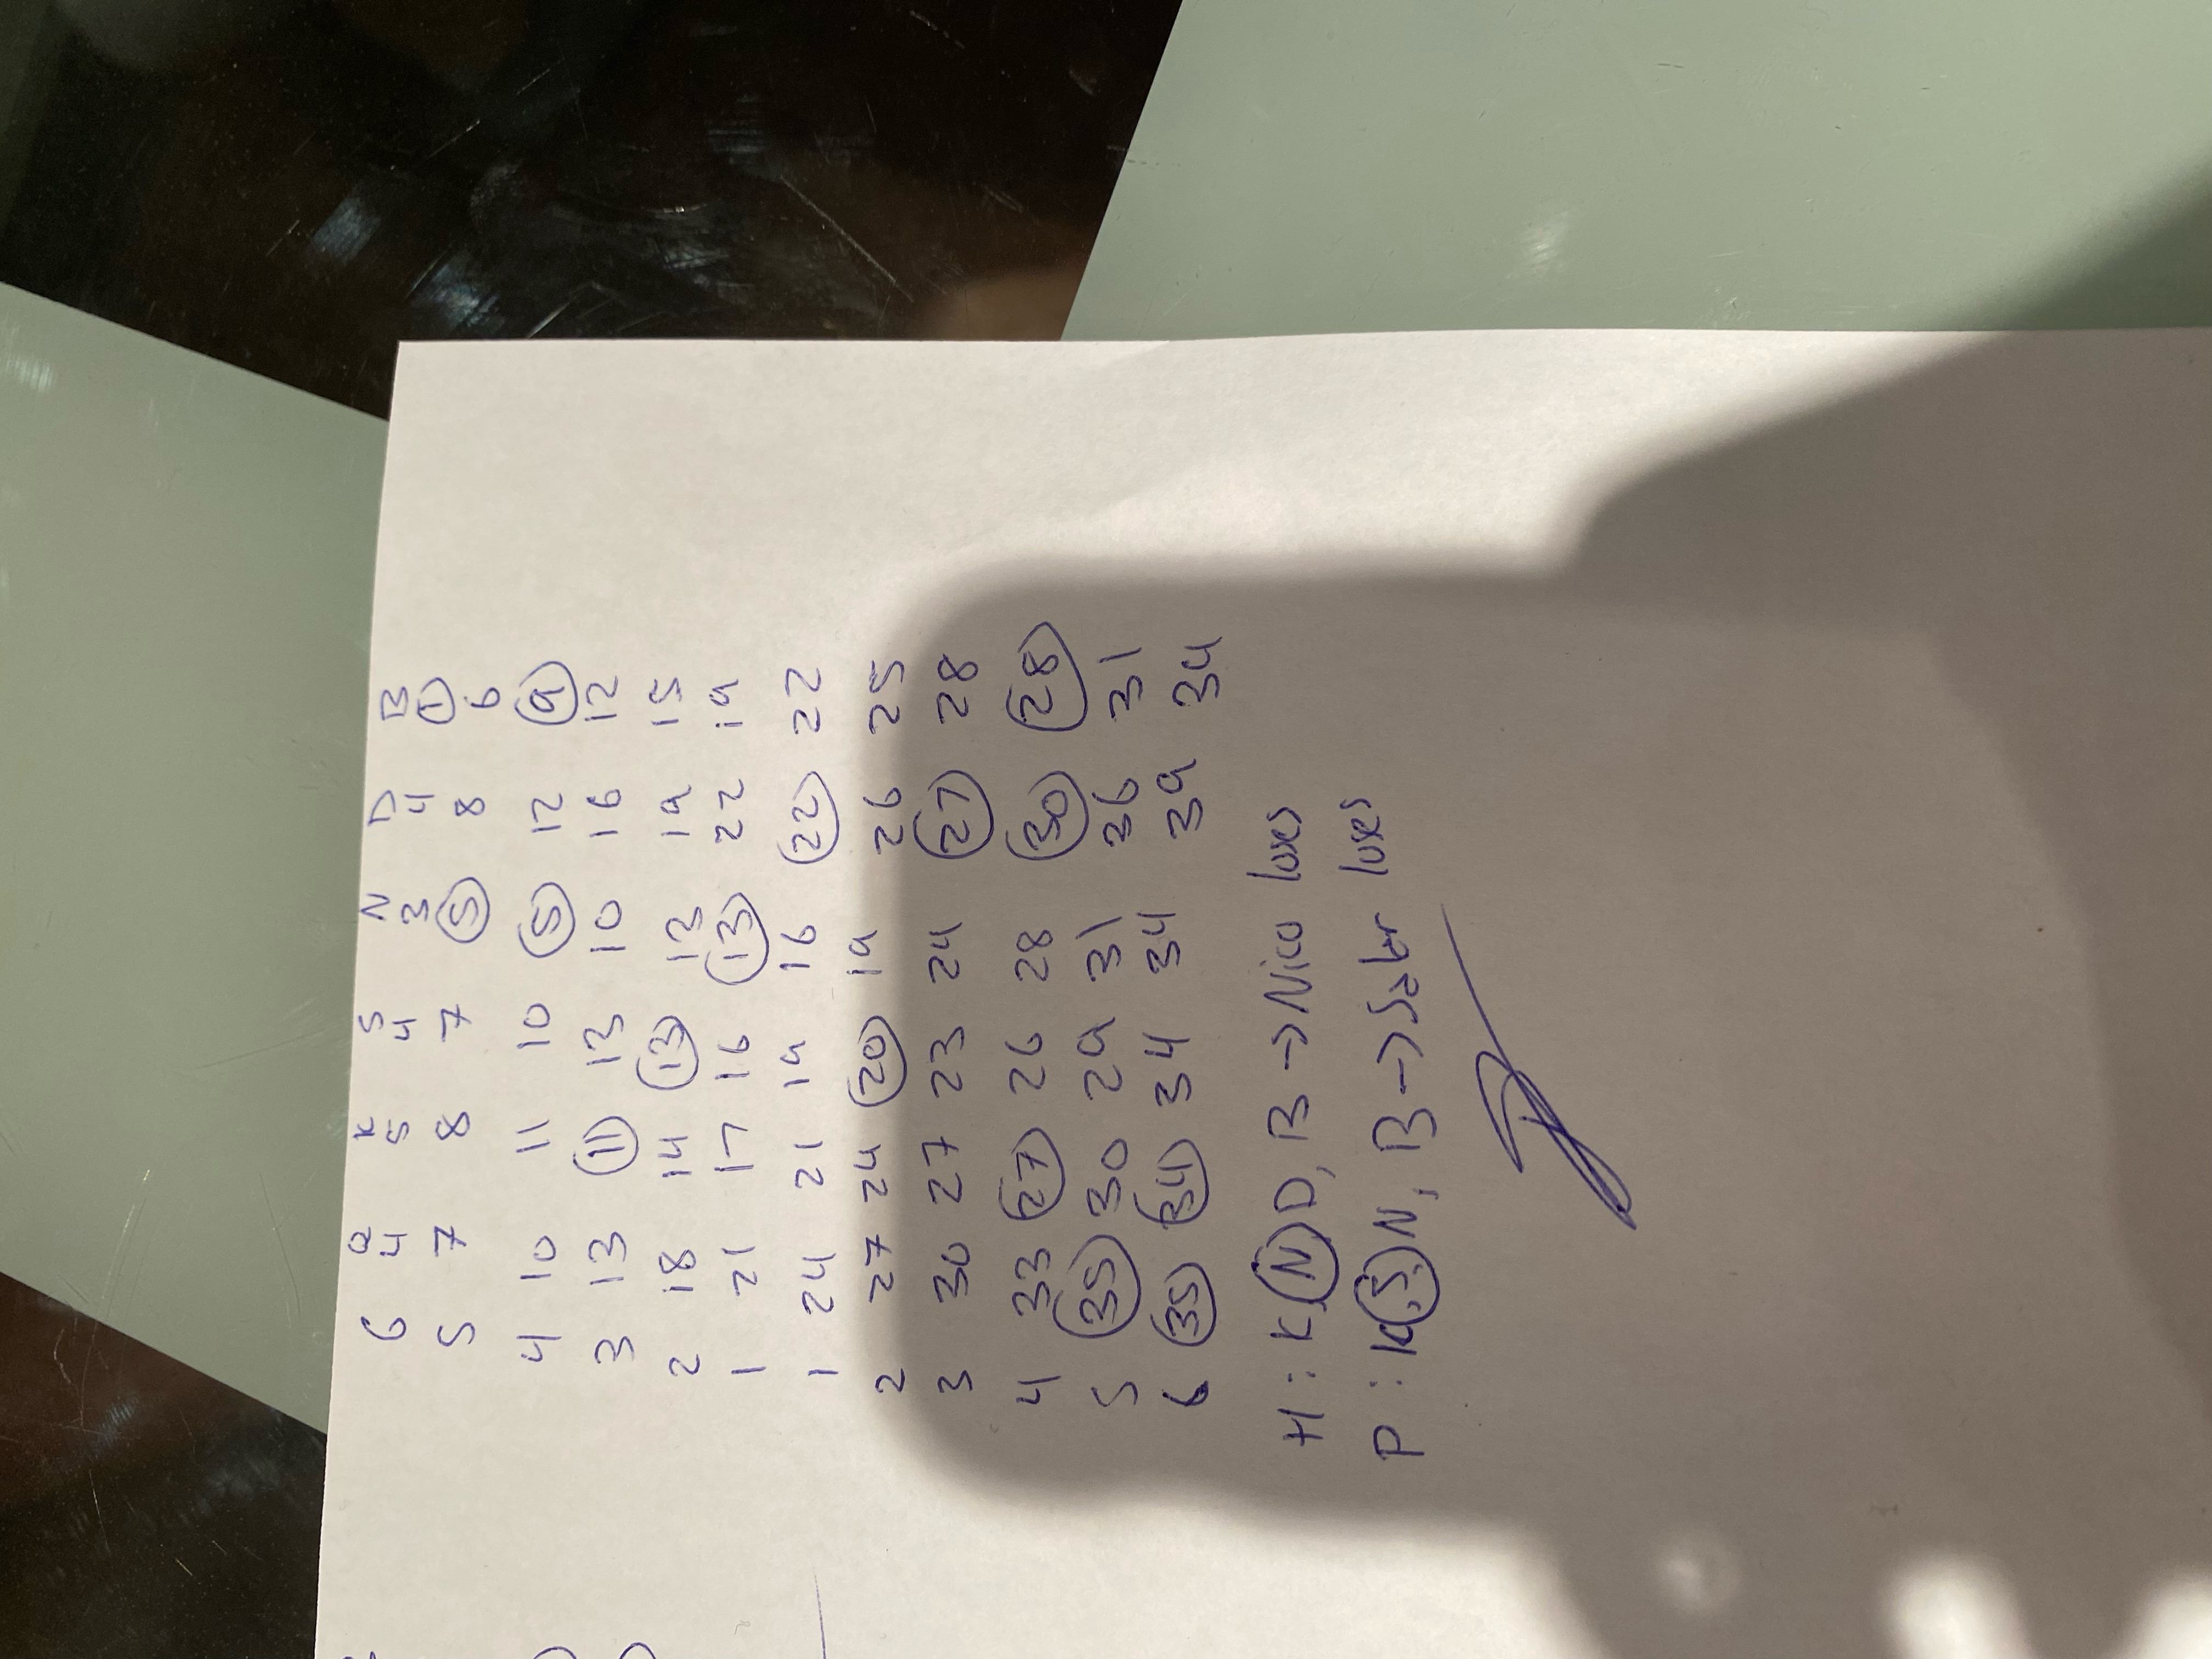 Q K S N D B
6 4 5 4 3 4 1
5 7 8 7 5 8 6
4 10 11 10 5 12 9
3 13 11 13 10 16 12
2 18 14 13 13 19 15
1 21 17 16 13 22 19
1 24 21 19 16 22 22
2 27 24 20 19 26 25
3 30 27 23 24 27 28
4 33 27 26 28 30 28
5 35 30 29 31 36 31
6 35 34 34 34 39 34
H: K, N, D, B → Nico loses
P: K, S, N, B → loses